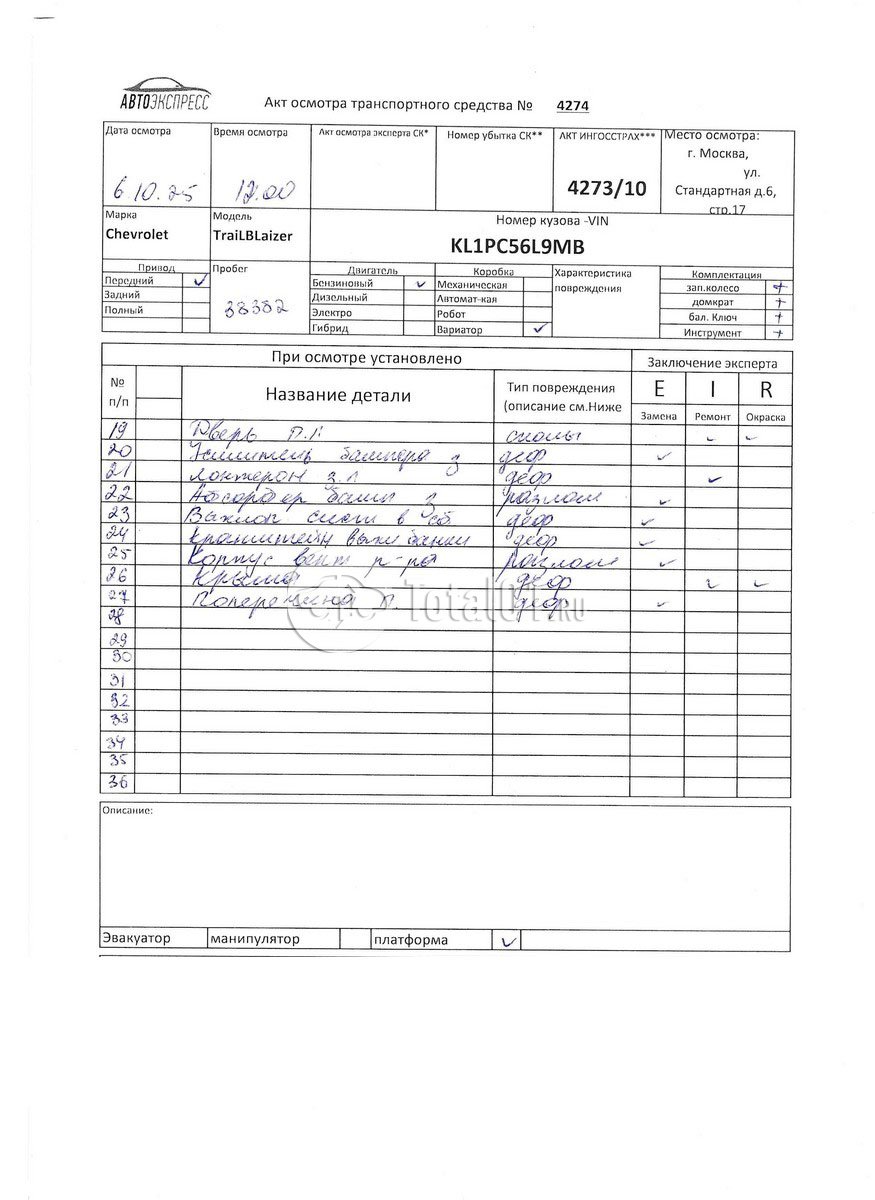 АВТОЭКСПРЕСС
Акт осмотра транспортного средства № 4274
Дата осмотра Время осмотра Акт осмотра эксперта СК* Номер убытка СК** АКТ ИНГОССТРАХ*** Место осмотра:
г. Москва,
ул.
6.10.25 12.00 4273/10 Стандартная д.6,
стр.17
Марка Модель Номер кузова -VIN
Chevrolet TraiLBLaizer KL1PC56L9MB
Привод Пробег Двигатель Коробка Характеристика повреждения Комплектация
Передний ✓ 38382 Бензиновый ✓ Механическая зап.колесо +
Задний Дизельный Автомат-кая домкрат +
Полный Электро Робот бал. Ключ +
Гибрид Вариатор ✓ Инструмент +
При осмотре установлено Заключение эксперта
№ п/п Название детали Тип повреждения (описание см.Ниже E I R
Замена Ремонт Окраска
19 Дверь сколы ✓ ✓
20 Усилитель бампера з деф ✓
21 Лонжерон з.л деф ✓
22 Абсорбер бамп з разлом ✓
23 Выхлоп сист в сб деф ✓
24 Кронштейн выхл банки деф ✓
25 Корпус вент р-ра разлом ✓
26 Крыша деф ✓ ✓
27 Поперечина деф ✓
28
29
30
31
32
33
34
35
36
Total01.RU
Описание:
Эвакуатор манипулятор платформа ✓